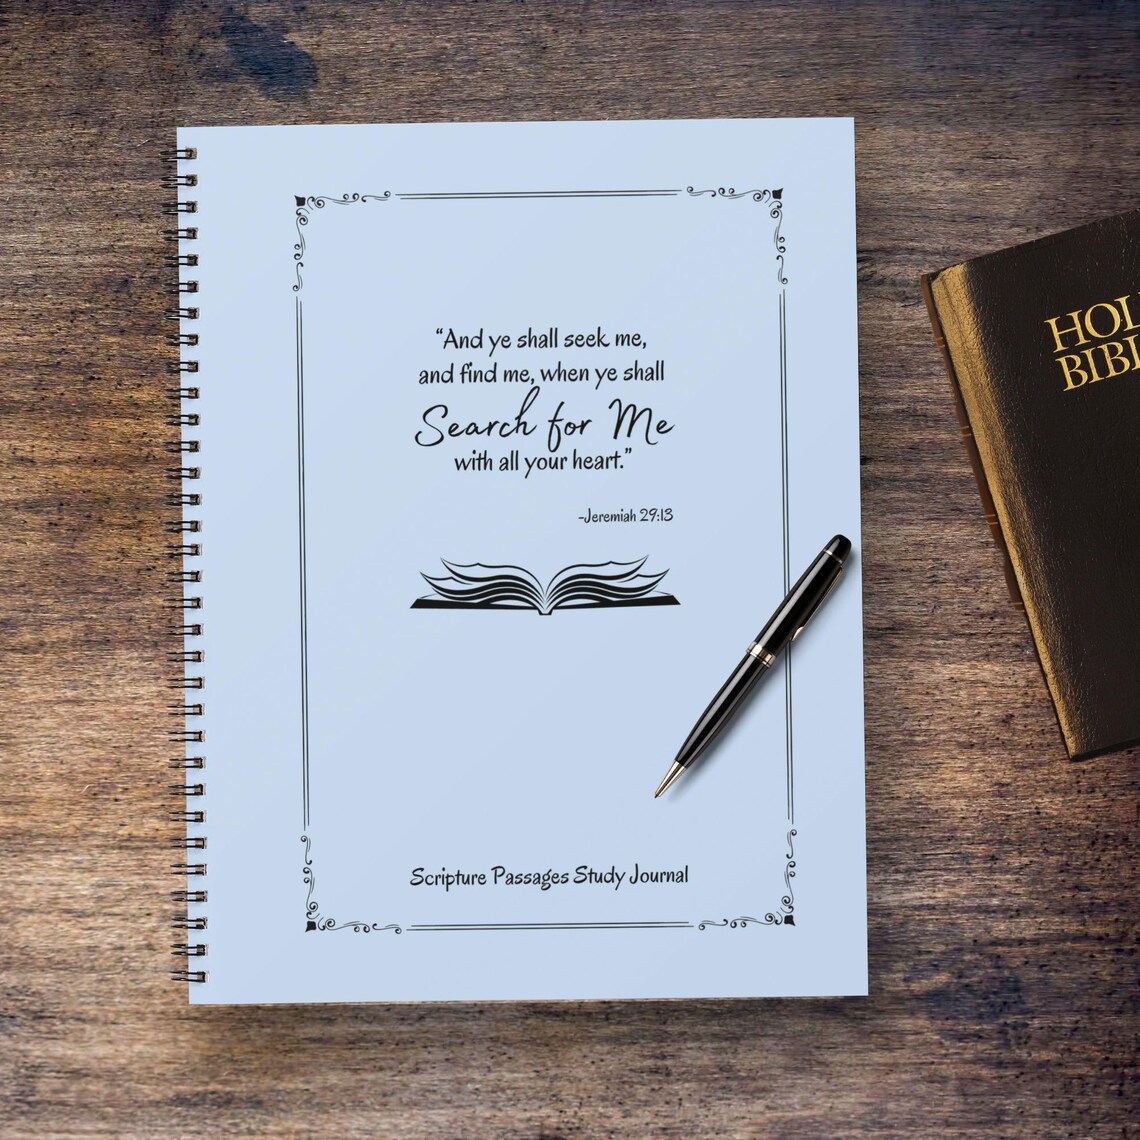 “And ye shall seek me,
and find me, when ye shall
Search for Me
with all your heart.”
-Jeremiah 29:13
Scripture Passages Study Journal
HOL
BIBL